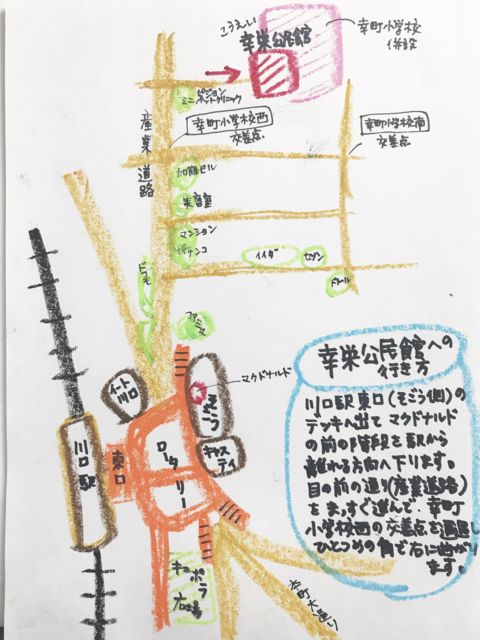 こうえい
幸栄公民館
幸町小学校
併設
ビジョン
ミニ
ペットクリニック
産業道路
幸町小学校西
交差点
幸町小学校南
交差点
加藤ビル
美容室
マンション
パチンコ
イイダ
セブン
ドトール
ファミマ
マクドナルド
そごう
アート
川口
キャスティ
川口駅
東口
ロータリー
キュポラ
広場
本町大通り
幸栄公民館への
行き方
川口駅東口(そごう側)の
デッキへ出て マクドナルド
の前の階段を駅から
離れる方向へ下ります。
目の前の通り(産業道路)
をまっすぐ進んで、幸町
小学校西の交差点を通過し
ひとつめの角で右に曲がり
ます。